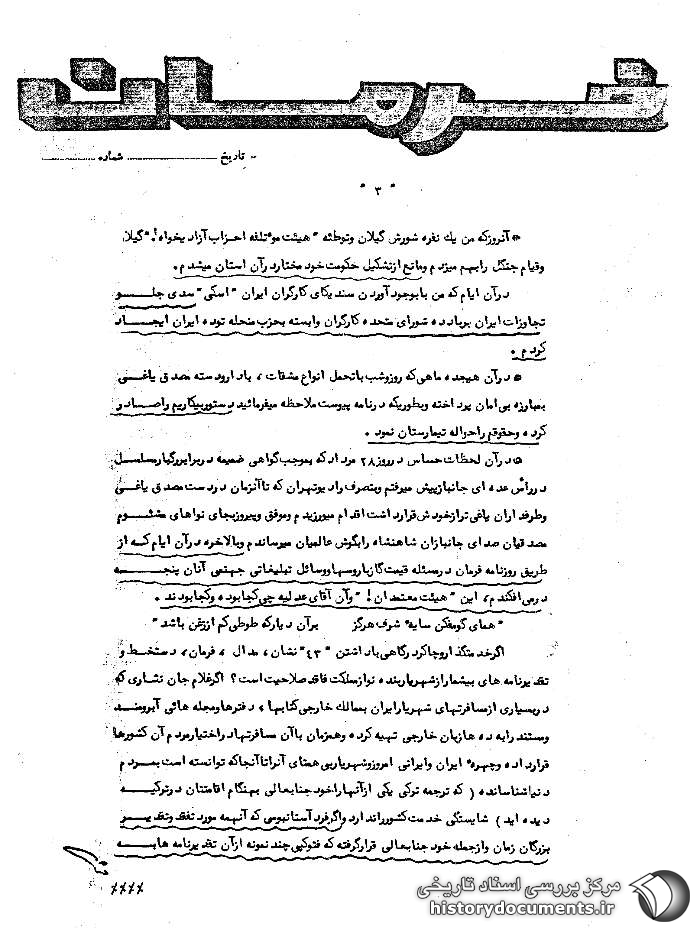 فرمان
تاریخ ـــــــــ شماره ـــــــــ
" ٣ "
* آنروزکه من یك نفره شورش گیلان وتوطئه " هیئت موءتلفه احزاب آزادیخواه! "گیلان
وقیام جنگل رابهم میزدم ومانع ازتشکیل حکومت خود مختاردرآن استان میشدم .
درآن ایام که من بابوجودآوردن سندیکای کارگران ایران " اسکی " سدی جلــو
تجاوزات ایران بربادده شورای متحده کارگران وابسته بحزب منحله توده ایران ایجــاد
کردم .
* درآن هیجده ماهی که روزوشب باتحمل انواع مشقات ، باد ارودسته مصدق یاغــی
بمبارزه بی امان پرداخته وبطوریکه درنامه پیوست ملاحظه میفرمائید دستوربیکاریم راصــادر
کرده وحقوقم راحواله تیمارستان نمود .
* درآن لحظات حساس درروز ٢٨ مرداد که بموجب گواهی ضمیمه دربرابررگبارمسلسل
دررأس عده ای جانبازپیش میرفتم وبتصرف رادیوتهران که تاآنزمان دردست مصدق یاغــی
وطرفداران یاغی ترازخودش قرارداشت اقدام میورزیدم وموفق وپیروزبجای نواهای مشئــوم
مصدقیان صدای جانبازان شاهنشاه رابگوش عالمیان میرساندم وبالاخره درآن ایام کــه از
طریق روزنامه فرمان درمسئله قیمت گازباروسهاووسائل تبلیغاتی جهنمی آنان پنجــه
درمی افکندم، این " هیئت معتمدان ! " وآن آقای عدلیه چی کجابود ه وکجابودند .
" همای گومفکن سایه شرف هرگز برآن دیارکه طوطی کم اززغن باشد "
اگرخدمتگذاروچاکردرگاهی باداشتن " ۴٣ " نشان ، مدال ، فرمان ، دستخــط و
تقدیرنامه های بیشمارازشهریاربنده نوازمملکت فاقد صلاحیت است ؟ اگرغلام جان نثاری که
دربسیاری ازمسافرتهای شهریارایران بممالك خارجی کتابها ، دفترهاومجله هائی آبرومنــد
ومستند رابه ده هازبان خارجی تهیه کرده وهمزمان باآن مسافرتهادراختیارمردم آن کشورها
قرارداده وچهره ایران وایرانی امروزوشهریاربی همتای آنراتاآنجاکه توانسته است بمــردم
دنیاشناسانده ( که ترجمه ترکی یکی ازآنهاراخود جنابعالی بهنگام اقامتتان درترکیــه
دیده اید ) شایستگی خدمت کشورراندارد واگرفرد آستانبوسی که آنهمه مورد تفقد وتقدیــر
بزرگان زمان وازجمله خود جنابعالی قرارگرفته که فتوکپی چند نمونه ازآن تقدیرنامه هابــه
××××
مرکز بررسی اسناد تاریخی
historydocuments.ir